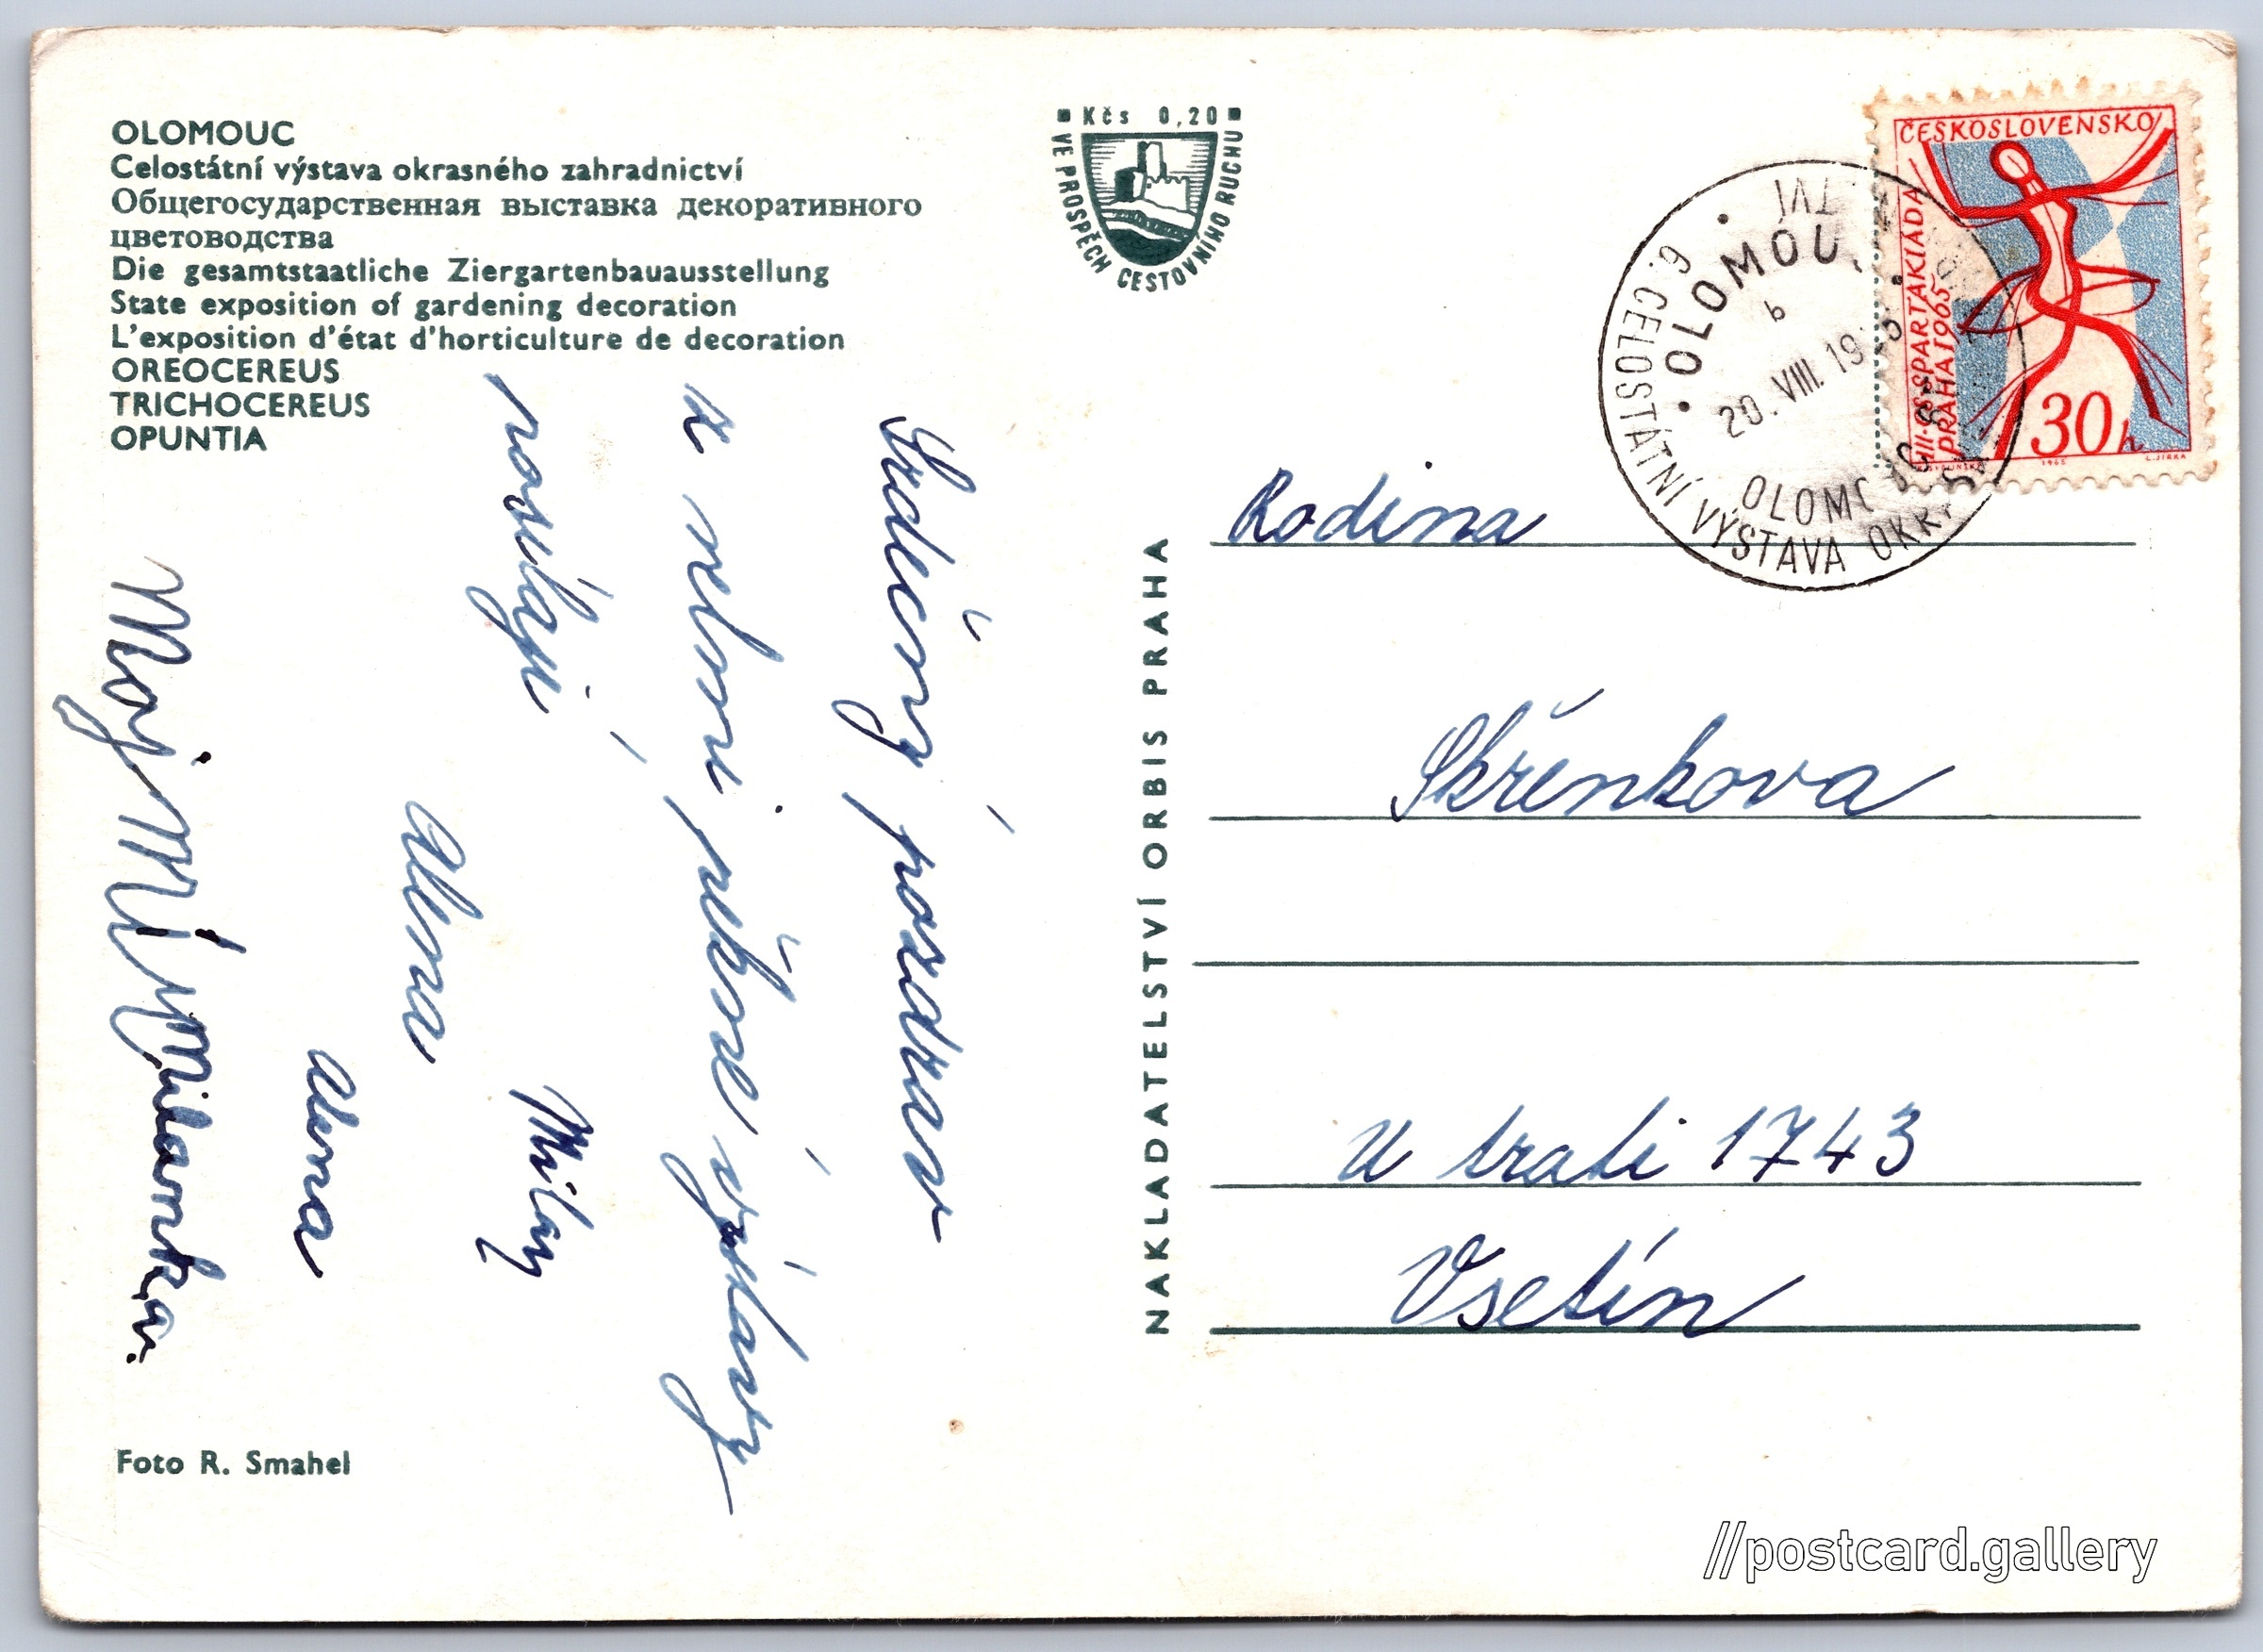 OLOMOUC
Celostátní výstava okrasného zahradnictví
Общегосударственная выставка декоративного
цветоводства
Die gesamtstaatliche Ziergartenbauausstellung
State exposition of gardening decoration
L'exposition d'état d'horticulture de decoration
OREOCEREUS
TRICHOCEREUS
OPUNTIA
Srdečný pozdrav
z velmi pěkné výstavy
posílají
Milan
Alena
Alena
Moj Mí Milanka.
Foto R. Smahel
Kčs 0,20
VE PROSPĚCH CESTOVNÍHO RUCHU
NAKLADATELSTVÍ ORBIS PRAHA
ČESKOSLOVENSKO
III. CS. SPARTAKIADA
PRAHA 1965
30h
1965
L. JIRKA
OLOMOU
b
20. VIII. 19
OLOMOUC
6. CELOSTÁTNÍ VÝSTAVA OKR
TVÍ
Rodina
Skřenkova
U trati 1743
Vsetín
//postcard.gallery